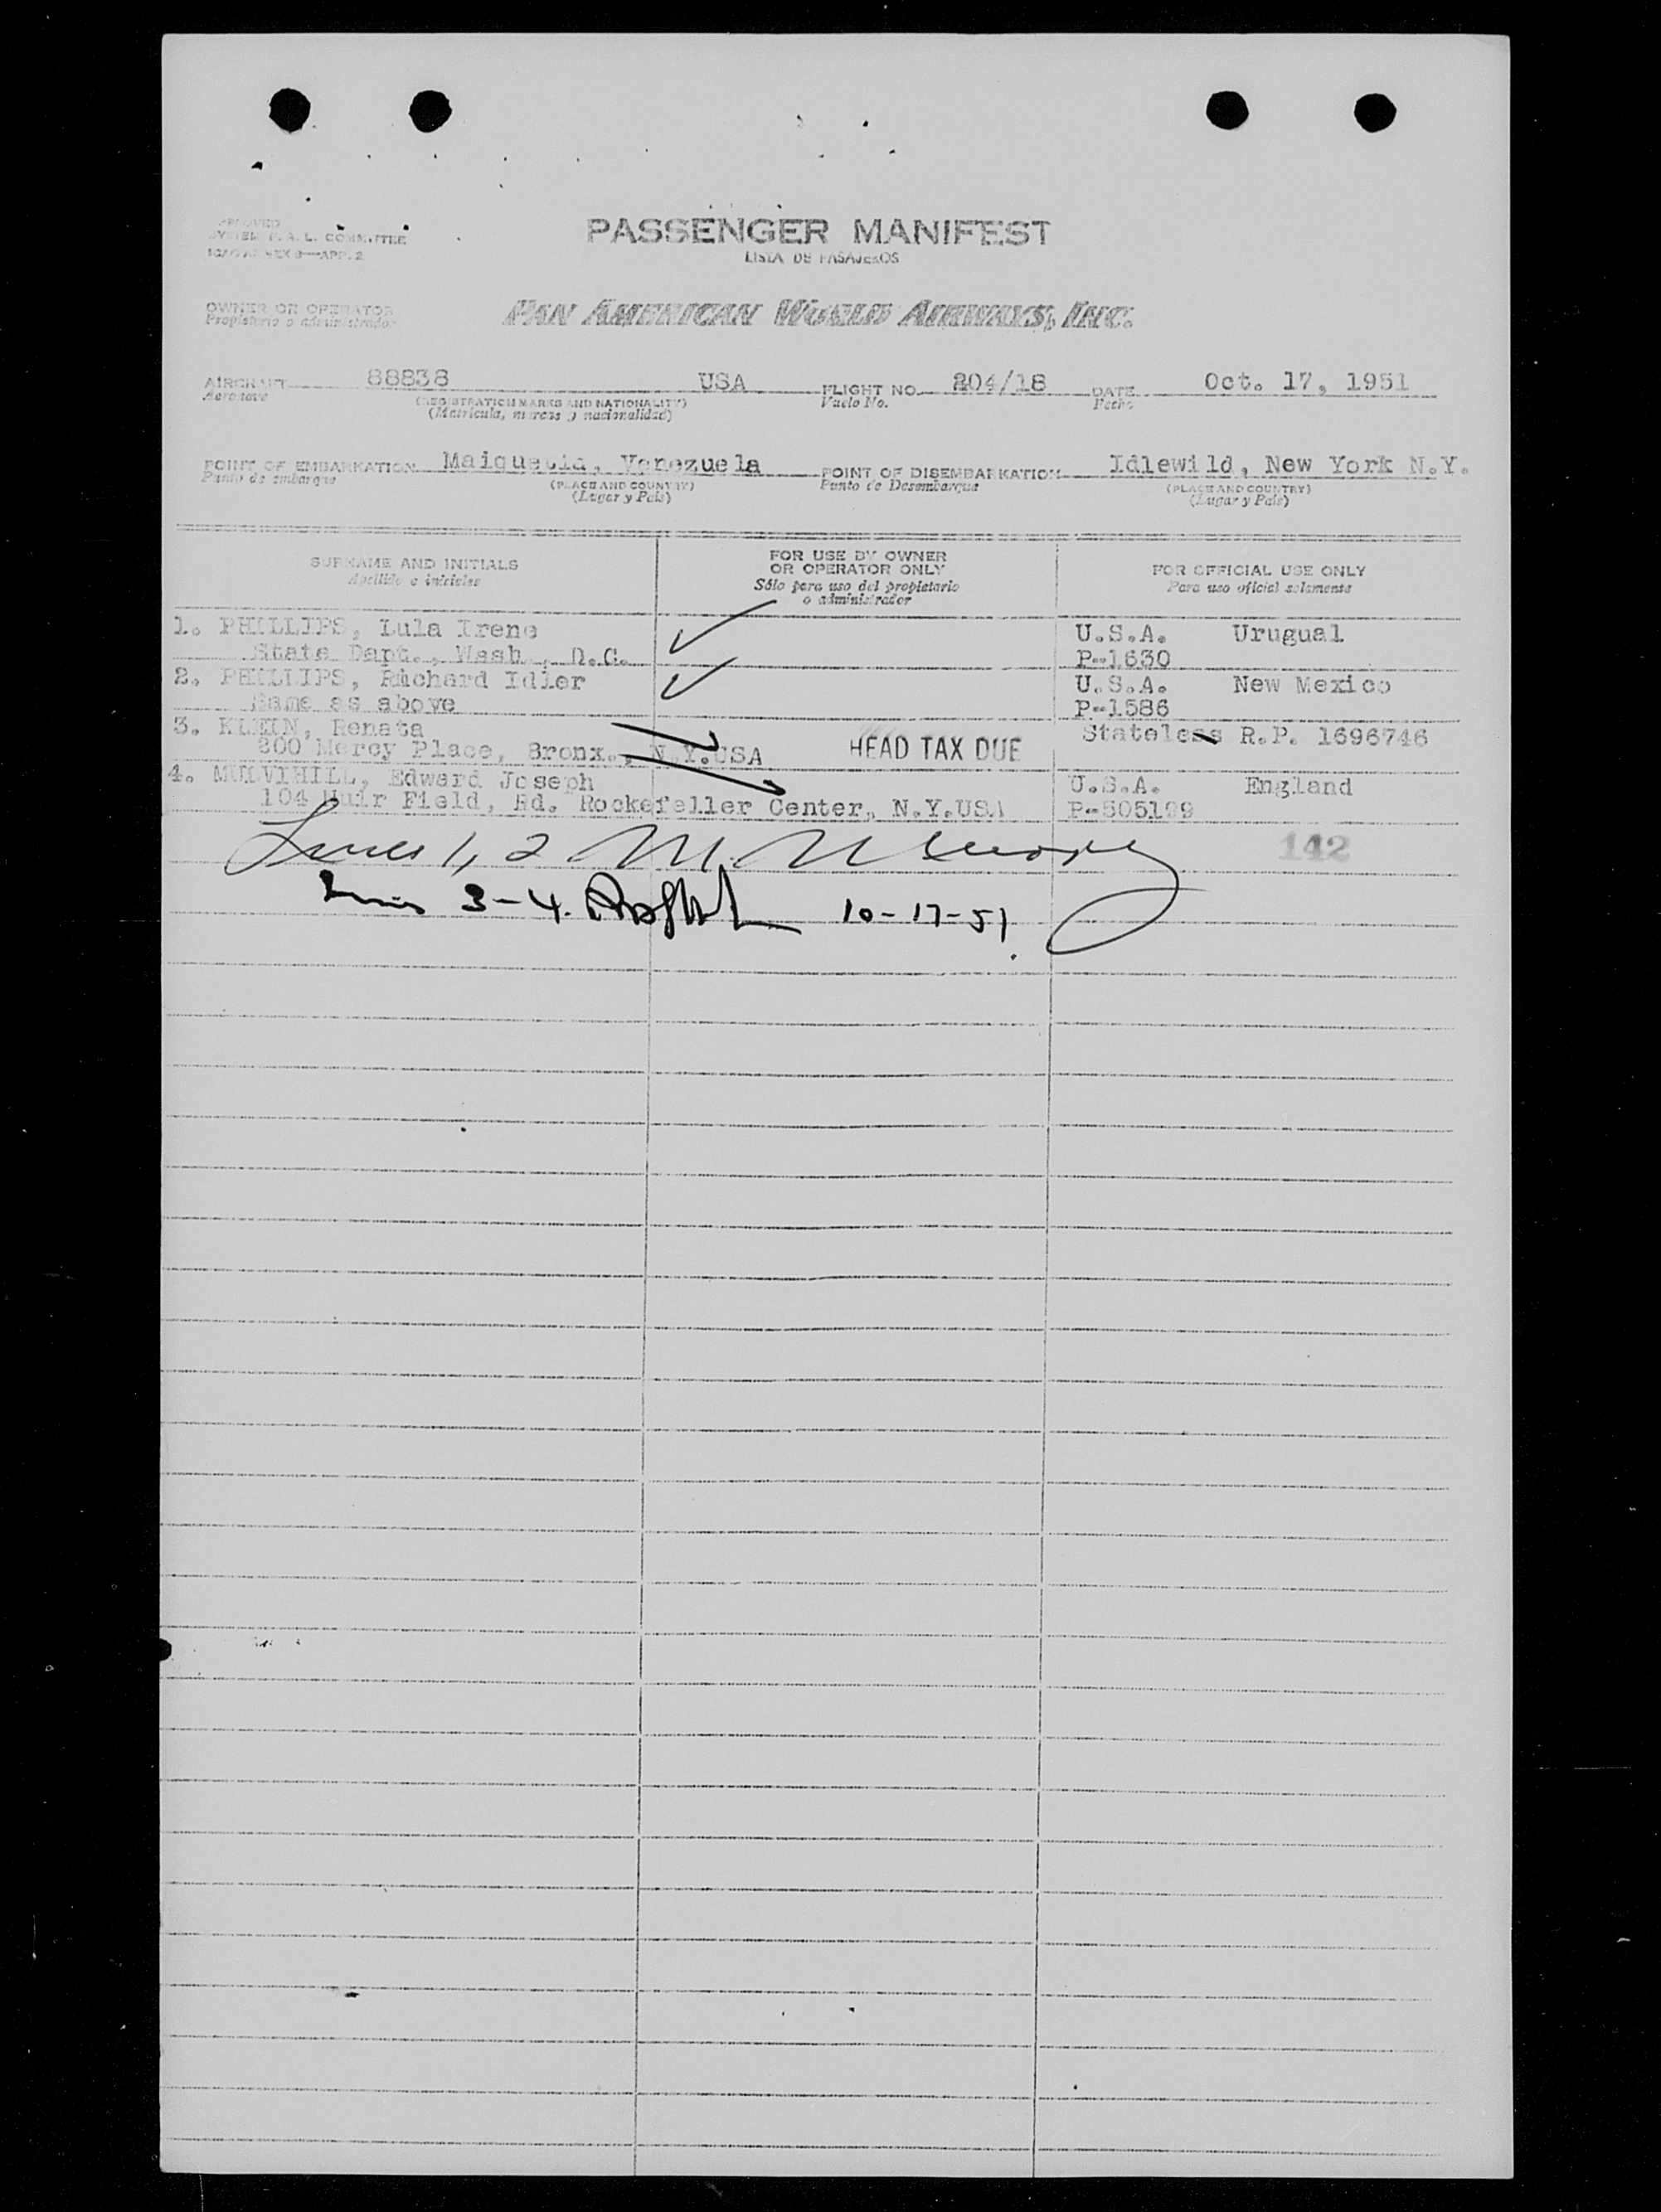 APPROVED
SYSTEM F.A.L. COMMITTEE
ICAO ANNEX 9—APP. 2
PASSENGER MANIFEST
LISTA DE PASAJEROS
OWNER OR OPERATOR
Propietario o administrador
PAN AMERICAN WORLD AIRWAYS, INC.
AIRCRAFT 88838 USA FLIGHT NO. 204/18 DATE Oct. 17, 1951
Aeronave (REGISTRATION MARKS AND NATIONALITY) Vuelo No. Fecha
(Matrícula, marcas y nacionalidad)
POINT OF EMBARKATION Maiquetia, Venezuela POINT OF DISEMBARKATION Idlewild, New York N.Y.
Punto de embarque (PLACE AND COUNTRY) Punto de Desembarque (PLACE AND COUNTRY)
(Lugar y País) (Lugar y País)
SURNAME AND INITIALS
Apellido e iniciales
FOR USE BY OWNER
OR OPERATOR ONLY
Sólo para uso del propietario
o administrador
FOR OFFICIAL USE ONLY
Para uso oficial solamente
1. PHILLIPS, Lula Irene U.S.A. Urugual
State Dept., Wash., D.C. P-1630
2. PHILLIPS, Richard Idler U.S.A. New Mexico
Same as above P-1586
3. KLEIN, Renata Stateless R.P. 1696746
800 Mercy Place, Bronx., N.Y.USA HEAD TAX DUE
4. MULVIHILL, Edward Joseph U.S.A. England
104 Muir Field, Rd. Rockefeller Center, N.Y.USA P-505199
Lines 1, 2 M.
142
Lines 3-4. 10-17-51